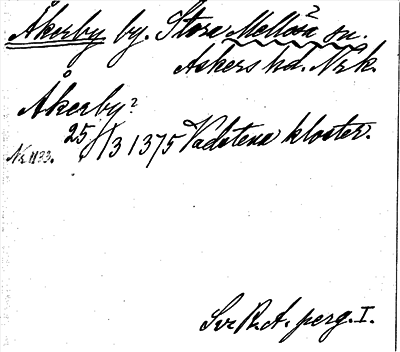 Åkerby by. Stora Mellösa sn.
Askers hd. Nrk.
Åkerby?
Nr 1133. 25/3 1375 Vadstena kloster.
Sv. R. A. perg. I.